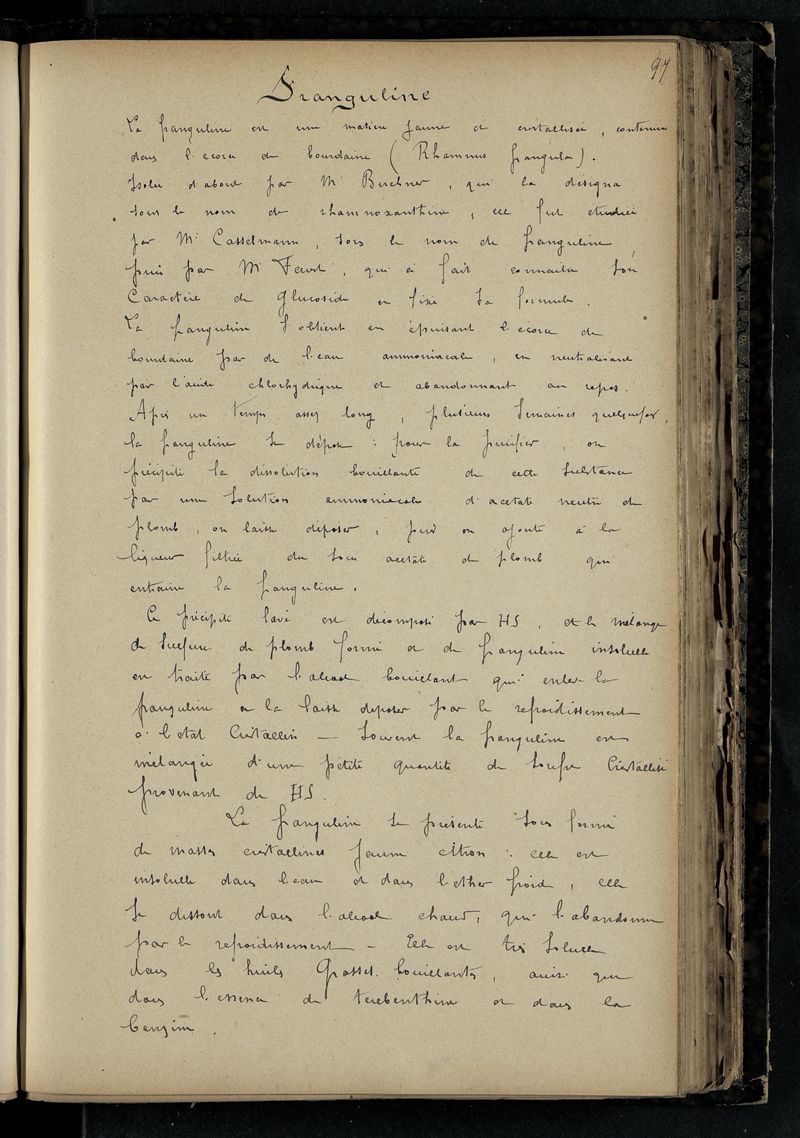 97
Franguline
La franguline est une matière jaune et cristallisée, contenue
dans l'écorce de bourdaine (Rhamnus frangula).
Isolée d'abord par Mr Buchner, qui la désigna
sous le nom de rhamnoxanthine, elle fut étudiée
par Mr Casselmann, sous le nom de franguline,
puis par Mr Faust, qui a fait connaitre son
Caractère de glucoside et fixé sa formule.
La franguline s'obtient en épuisant l'écorce de
bourdaine par de l'eau ammoniacale, en neutralisant
par l'acide chlorhydrique et abandonnant au repos.
Après un temps assez long, plusieurs semaines quelquefois,
la franguline se dépose : pour la purifier, on
précipite la dissolution bouillante de cette substance
par une solution ammoniacale d'acétate neutre de
plomb, on laisse déposer, puis on ajoute à la
liqueur filtrée du sous acétate de plomb qui
entraine la franguline.
Ce précipité lavé est décomposé par HS, et le mélange
de sulfure de plomb formé et de franguline insoluble
est traité par l'alcool bouillant qui enlève la
franguline et la laisse déposer par le refroidissement
à l'état cristallin — Souvent la franguline est
mélangée d'une petite quantité de soufre cristallisé
provenant de HS.
La franguline se présente sous forme
de masses cristallines jaune citron : elle est
insoluble dans l'eau et dans l'éther froid, elle
se dissout dans l'alcool chaud, qui l'abandonne
par le refroidissement — Elle est très soluble
dans les huiles grasses bouillantes, ainsi que
dans l'essence de térébenthine et dans la
benzine.